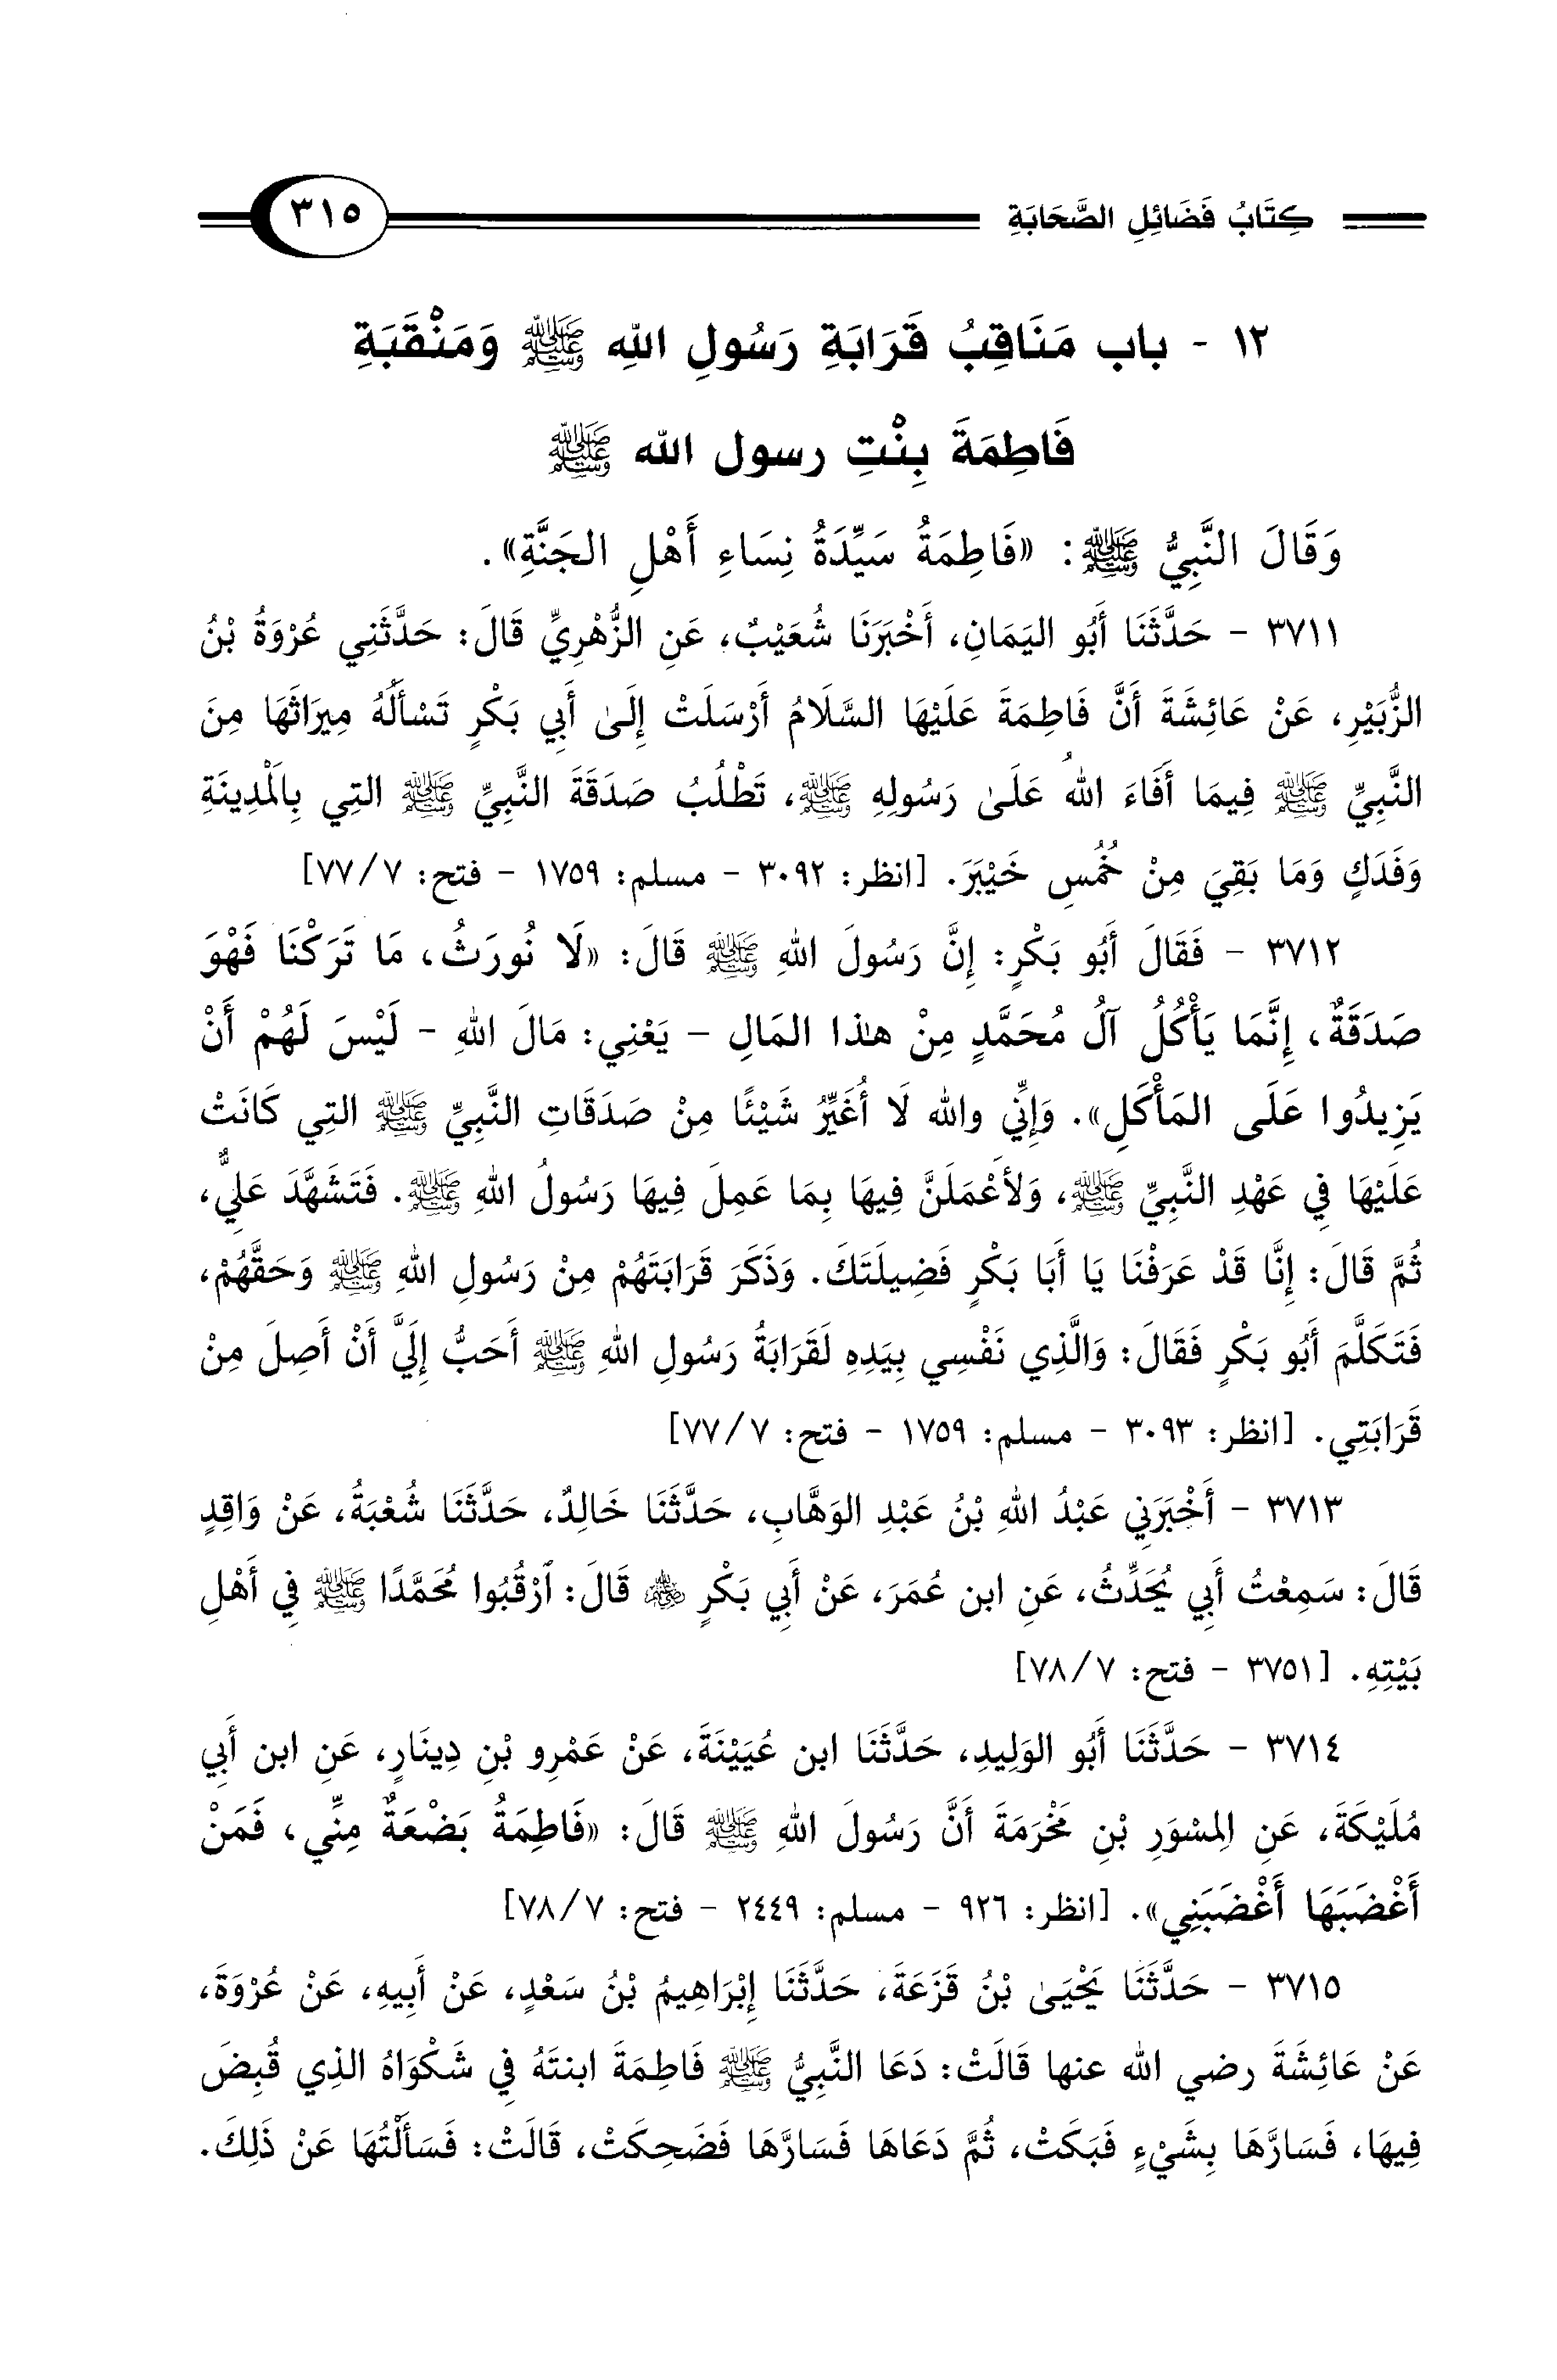 كِتَابُ فَضَائِلِ الصَّحَابَةِ ٣١٥
١٢ - باب مَنَاقِبُ قَرَابَةِ رَسُولِ اللهِ ﷺ وَمَنْقَبَةِ
فَاطِمَةَ بِنْتِ رسول الله ﷺ
وَقَالَ النَّبِيُّ ﷺ: «فَاطِمَةُ سَيِّدَةُ نِسَاءِ أَهْلِ الجَنَّةِ».
٣٧١١ - حَدَّثَنَا أَبُو اليَمَانِ، أَخْبَرَنَا شُعَيْبٌ، عَنِ الزُّهْرِيِّ قَالَ: حَدَّثَنِي عُرْوَةُ بْنُ
الزُّبَيْرِ، عَنْ عَائِشَةَ أَنَّ فَاطِمَةَ عَلَيْهَا السَّلَامُ أَرْسَلَتْ إِلَىٰ أَبِي بَكْرٍ تَسْأَلُهُ مِيرَاثَهَا مِنَ
النَّبِيِّ ﷺ فِيمَا أَفَاءَ اللهُ عَلَىٰ رَسُولِهِ ﷺ، تَطْلُبُ صَدَقَةَ النَّبِيِّ ﷺ التِي بِالَمْدِينَةِ
وَفَدَكٍ وَمَا بَقِيَ مِنْ خُمُسِ خَيْبَرَ. [انظر: ٣٠٩٢ - مسلم: ١٧٥٩ - فتح: ٧/ ٧٧]
٣٧١٢ - فَقَالَ أَبُو بَكْرٍ: إِنَّ رَسُولَ اللهِ ﷺ قَالَ: «لَا نُورَثُ، مَا تَرَكْنَا فَهْوَ
صَدَقَةٌ، إِنَّمَا يَأْكُلُ آلُ مُحَمَّدٍ مِنْ هٰذا المَالِ - يَعْنِي: مَالَ اللهِ - لَيْسَ لَهُمْ أَنْ
يَزِيدُوا عَلَى المَأْكَلِ». وَإِنِّي والله لَا أُغَيِّرُ شَيْئًا مِنْ صَدَقَاتِ النَّبِيِّ ﷺ التِي كَانَتْ
عَلَيْهَا فِي عَهْدِ النَّبِيِّ ﷺ، وَلأَعْمَلَنَّ فِيهَا بِمَا عَمِلَ فِيهَا رَسُولُ اللهِ ﷺ. فَتَشَهَّدَ عَلِيٌّ،
ثُمَّ قَالَ: إِنَّا قَدْ عَرَفْنَا يَا أَبَا بَكْرٍ فَضِيلَتَكَ. وَذَكَرَ قَرَابَتَهُمْ مِنْ رَسُولِ اللهِ ﷺ وَحَقَّهُمْ،
فَتَكَلَّمَ أَبُو بَكْرٍ فَقَالَ: وَالَّذِي نَفْسِي بِيَدِهِ لَقَرَابَةُ رَسُولِ اللهِ ﷺ أَحَبُّ إِلَيَّ أَنْ أَصِلَ مِنْ
قَرَابَتِي. [انظر: ٣٠٩٣ - مسلم: ١٧٥٩ - فتح: ٧/ ٧٧]
٣٧١٣ - أَخْبَرَنِي عَبْدُ اللهِ بْنُ عَبْدِ الوَهَّابِ، حَدَّثَنَا خَالِدٌ، حَدَّثَنَا شُعْبَةُ، عَنْ وَاقِدٍ
قَالَ: سَمِعْتُ أَبِي يُحَدِّثُ، عَنِ ابن عُمَرَ، عَنْ أَبِي بَكْرٍ رضي الله عنه قَالَ: ٱرْقُبُوا مُحَمَّدًا ﷺ فِي أَهْلِ
بَيْتِهِ. [٣٧٥١ - فتح: ٧/ ٧٨]
٣٧١٤ - حَدَّثَنَا أَبُو الوَلِيدِ، حَدَّثَنَا ابن عُيَيْنَةَ، عَنْ عَمْرِو بْنِ دِينَارٍ، عَنِ ابن أَبِي
مُلَيْكَةَ، عَنِ المِسْوَرِ بْنِ مَخْرَمَةَ أَنَّ رَسُولَ اللهِ ﷺ قَالَ: «فَاطِمَةُ بَضْعَةٌ مِنِّي، فَمَنْ
أَغْضَبَهَا أَغْضَبَنِي». [انظر: ٩٢٦ - مسلم: ٢٤٤٩ - فتح: ٧/ ٧٨]
٣٧١٥ - حَدَّثَنَا يَحْيَىٰ بْنُ قَزَعَةَ، حَدَّثَنَا إِبْرَاهِيمُ بْنُ سَعْدٍ، عَنْ أَبِيهِ، عَنْ عُرْوَةَ،
عَنْ عَائِشَةَ رضي الله عنها قَالَتْ: دَعَا النَّبِيُّ ﷺ فَاطِمَةَ ابنتَهُ فِي شَكْوَاهُ الذِي قُبِضَ
فِيهَا، فَسَارَّهَا بِشَيْءٍ فَبَكَتْ، ثُمَّ دَعَاهَا فَسَارَّهَا فَضَحِكَتْ، قَالَتْ: فَسَأَلْتُهَا عَنْ ذَلِكَ.